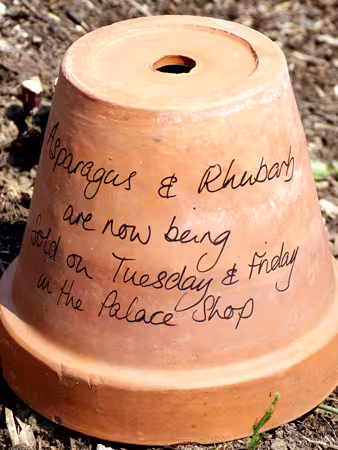 Asparagus & Rhubarb
are now being
Sold on Tuesday & Friday
in the Palace Shop